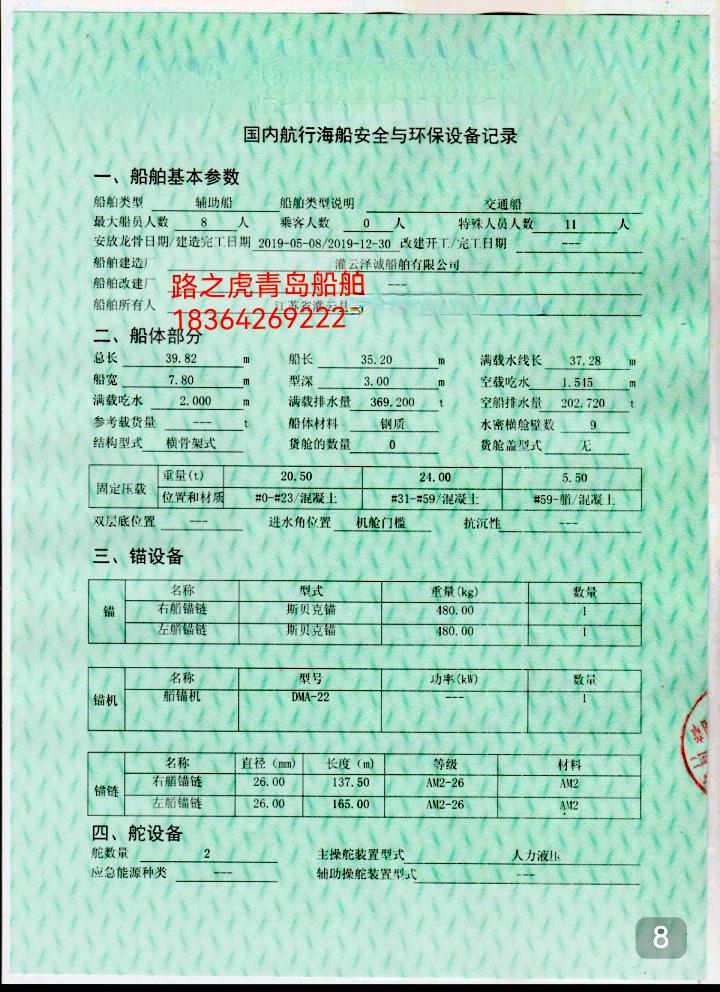 国内航行海船安全与环保设备记录
一、船舶基本参数
船舶类型 辅助船 船舶类型说明 交通船
最大船员人数 8 人 乘客人数 0 人 特殊人员人数 11 人
安放龙骨日期/建造完工日期 2019-05-08/2019-12-30 改建开工/完工日期 ---
船舶建造厂 灌云泽诚船舶有限公司
船舶改建厂 ---
路之虎青岛船舶
船舶所有人 江苏省灌云县
18364269222
二、船体部分
总长 39.82 m 船长 35.20 m 满载水线长 37.28 m
船宽 7.80 m 型深 3.00 m 空载吃水 1.545 m
满载吃水 2.000 m 满载排水量 369.200 t 空船排水量 202.720 t
参考载货量 --- t 船体材料 钢质 水密横舱壁数 9
结构型式 横骨架式 货舱的数量 0 货舱盖型式 无
固定压载 重量(t) 20.50 24.00 5.50
位置和材质 #0-#23/混凝土 #31-#59/混凝土 #59-艏/混凝土
双层底位置 --- 进水角位置 机舱门槛 抗沉性 ---
三、锚设备
锚 名称 型式 重量(kg) 数量
右艏锚链 斯贝克锚 480.00 1
左艏锚链 斯贝克锚 480.00 1
锚机 名称 型号 功率(kW) 数量
艏锚机 DMA-22 --- 1
锚链 名称 直径(mm) 长度(m) 等级 材料
右艏锚链 26.00 137.50 AM2-26 AM2
左艏锚链 26.00 165.00 AM2-26 AM2
四、舵设备
舵数量 2 主操舵装置型式 人力液压
应急能源种类 --- 辅助操舵装置型式 ---
8